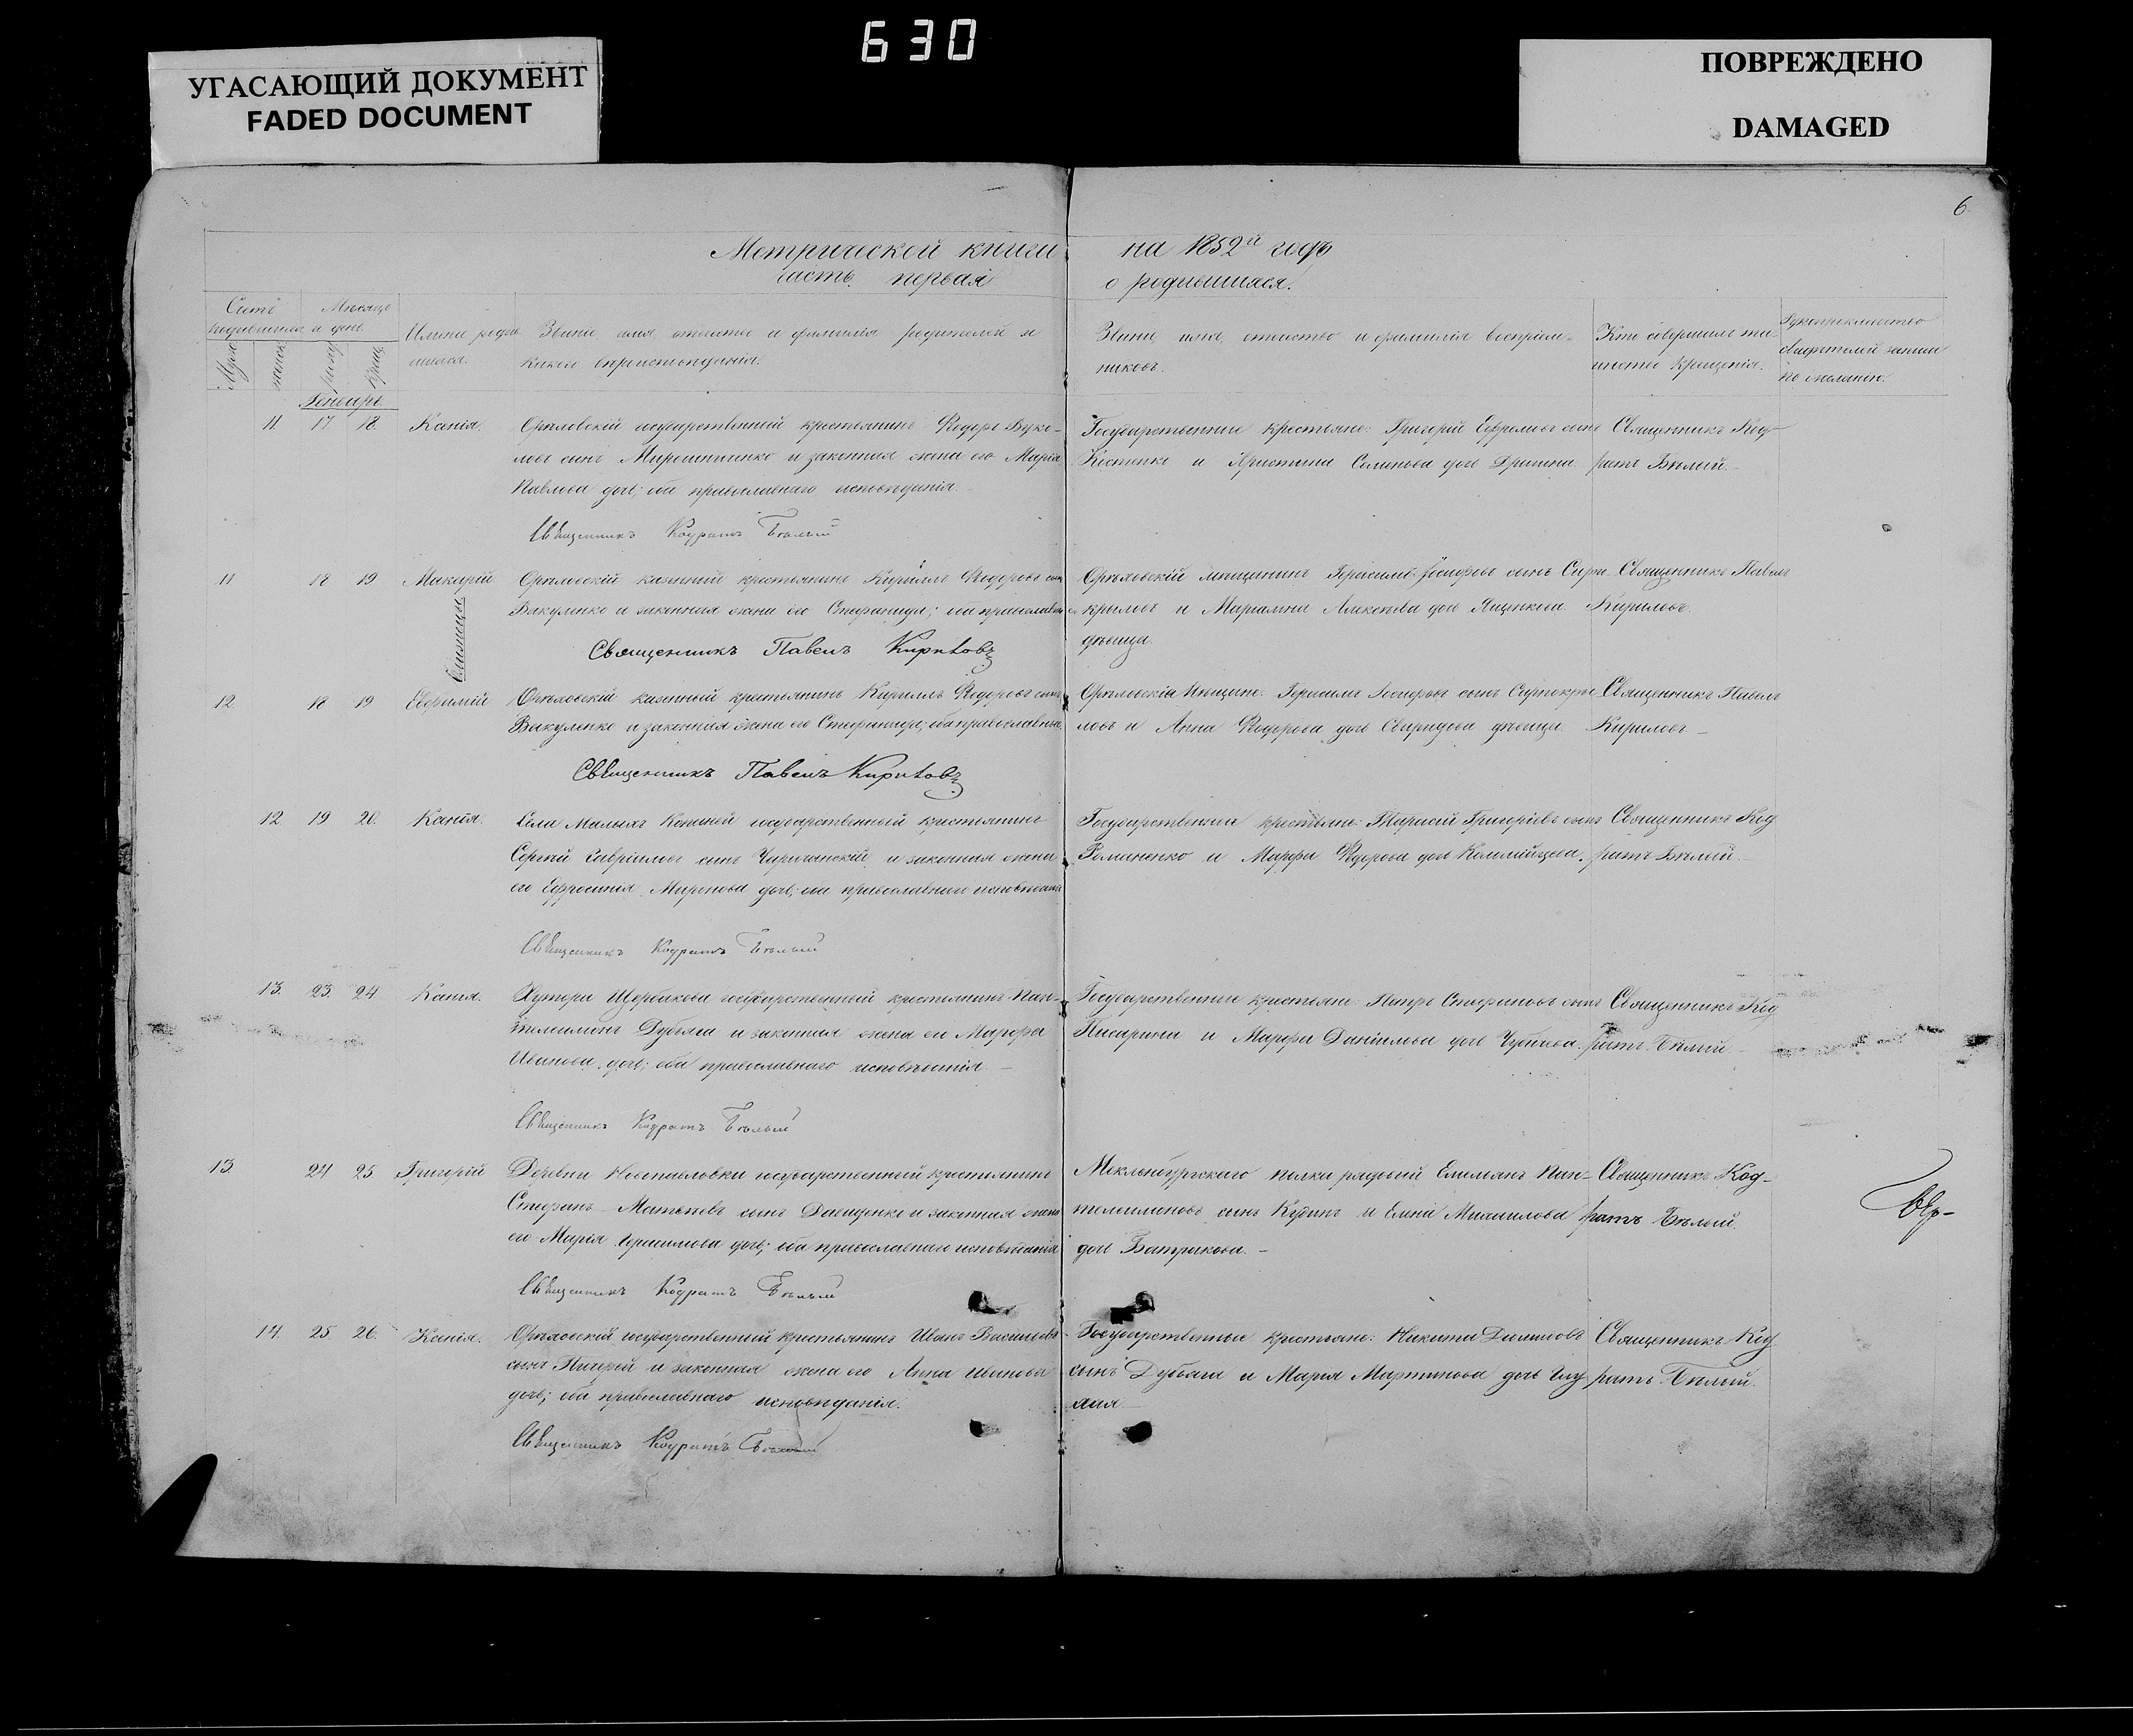 630
УГАСАЮЩИЙ ДОКУМЕНТ
FADED DOCUMENT
ПОВРЕЖДЕНО
DAMAGED
6
Метрической книги на 1852й годъ
часть первая о родившихся.
Счетъ родившихся
Мѣсяцъ и день
Имена
Званіе имя отчество и фамилія родителей и
какого вѣроисповѣданія.
Званіе, имя, отчество и фамилія воспріем-
никовъ.
Кто совершалъ та-
инство крещенія.
Рукоприкладство
свидѣтелей записи
по желанію.
Генварь
11. 17. 18. Ксенія.
Орѣховскій государственный крестьянинъ Ѳедоръ
сынъ Мирошниченко и законная жена его Марія
Павлова дочь; оба православнаго исповѣданія.
Священникъ Кодратъ Бѣлый
Государственные крестьяне: Григорій Ефремовъ сынъ
Костенко и Христина дочь
Священникъ Код-
ратъ Бѣлый.
11 18 19 Макарій
Близнецы
Орѣховскій казенный крестьянинъ Кириллъ Ѳедоровъ сынъ
Вакуленко и законная жена его Стефанида; оба православные
Священникъ Павелъ Кириловъ
Орѣховскій мѣщанинъ Герасимъ Іосифовъ сынъ
и Маріамна Алексѣева дочь
дѣвица.
Священникъ Павелъ
Кириловъ.
12. 18 19 Евфимій
Орѣховскій казенный крестьянинъ Кириллъ Ѳедоровъ сынъ
Вакуленко и законная жена его Стефанида; оба православные.
Священникъ Павелъ Кириловъ
Орѣховскіе мѣщане: Герасимъ Іосифовъ сынъ
и Анна Ѳедорова дочь Свиридова дѣвица.
Священникъ Павелъ
Кириловъ
12. 19 20. Ксенія.
Села Малыхъ Копаней государственный крестьянинъ
Сергѣй Гавріиловъ сынъ Чаричанскій и законная жена
его Ефросинія Миронова дочь; оба православнаго исповѣданія
Священникъ Кодратъ Бѣлый
Государственные крестьяне: Тарасій Григоріевъ сынъ
Романенко и Марфа Ѳедорова дочь Коломійцева.
Священникъ Код
ратъ Бѣлый.
13. 23. 24 Ксенія.
Хутора Щербакова государственный крестьянинъ Пан-
телеимонъ Дубяга и законная жена его Марфа
Иванова дочь; оба православнаго исповѣданія
Священникъ Кодратъ Бѣлый
Государственные крестьяне: Петръ Стефановъ сынъ
и Марфа Даніилова дочь
Священникъ Код
ратъ Бѣлый
13 24 25 Григорій
Деревни Новопавловки государственный крестьянинъ
Стефанъ Матѳѣевъ сынъ Давиденко и законная жена
его Марія Герасимова дочь; оба православнаго исповѣданія
Священникъ Кодратъ Бѣлый
полка рядовой Емельянъ Пан-
телеимоновъ сынъ и Елена Михаилова
дочь Батракова.
Священникъ Код-
ратъ Бѣлый.
14. 25 26. Ксенія.
Орѣховскій государственный крестьянинъ Иванъ Васильевъ
сынъ и законная жена его Анна Иванова
дочь; оба православнаго исповѣданія.
Священникъ Кодратъ Бѣлый
Государственные крестьяне: Никита
сынъ Дубяга и Марія Мартинова дочь
Священникъ Код
ратъ Бѣлый.